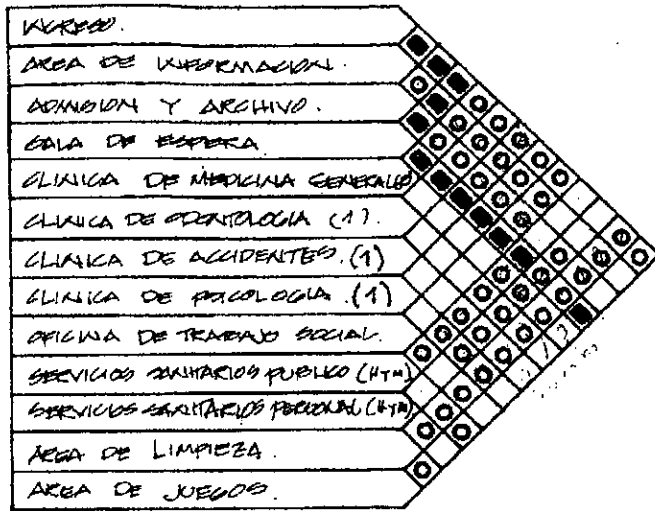 INGRESO.
AREA DE INFORMACION.
ADMISION Y ARCHIVO.
SALA DE ESPERA
CLINICA DE MEDICINA GENERAL(2)
CLINICA DE ODONTOLOGIA (1).
CLINICA DE ACCIDENTES. (1)
CLINICA DE PSICOLOGIA. (1)
OFICINA DE TRABAJO SOCIAL.
SERVICIOS SANITARIOS PUBLICO (H Y M)
SERVICIOS SANITARIOS PERSONAL (H Y M)
AREA DE LIMPIEZA.
AREA DE JUEGOS.